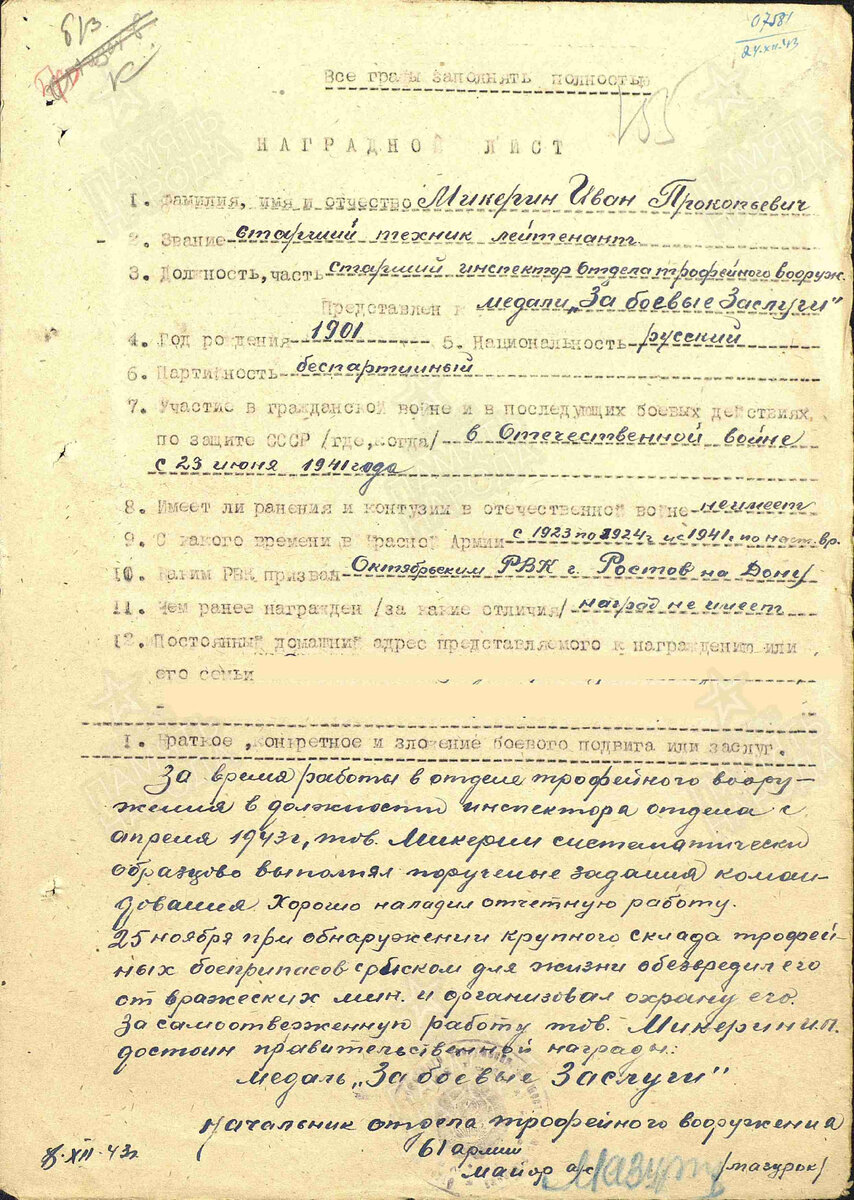 б/3
07581
24.XII.43
Все графы заполнять полностью
НАГРАДНОЙ ЛИСТ
1. Фамилия, имя и отчество Микерин Иван Прокопьевич
2. Звание старший техник лейтенант
3. Должность, часть старший инспектор отдела трофейного вооруж.
Представлен к медали „За боевые Заслуги"
4. Год рождения 1901 5. Национальность русский
6. Партийность беспартийный
7. Участие в гражданской войне и в последующих боевых действиях
по защите СССР /где, когда/ в Отечественной войне
с 23 июня 1941 года
8. Имеет ли ранения и контузии в отечественной войне не имеет
9. С какого времени в Красной Армии с 1923 по 1924 г и с 1941 г. по наст. вр.
10. Каким РВК призван Октябрьским РВК г. Ростов на Дону
11. Чем ранее награжден /за какие отличия/ наград не имеет
12. Постоянный домашний адрес представляемого к награждению или
его семьи
I. Краткое, конкретное изложение боевого подвига или заслуг.
За время работы в отделе трофейного воору-
жения в должности инспектора отдела с
апреля 1943 г, тов. Микерин систематически
образцово выполнял порученые задания коман-
дования. Хорошо наладил отчетную работу.
25 ноября при обнаружении крупного склада трофей-
ных боеприпасов с риском для жизни обезвредил его
от вражеских мин. и организовал охрану его.
За самоотверженную работу тов. Микерин И.П.
достоин правительственной награды:
Медаль „За боевые Заслуги"
Начальник отдела трофейного вооружения
61 армии
8.XII.43 г. майор а/с Мазурок /мазурок/
ПАМЯТЬ НАРОДА